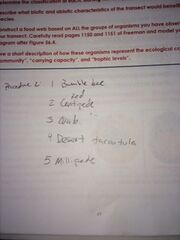 termine the classification of each, usi
nsider what biotic and abiotic characteristics of the transect would benefit
ecies.
onstruct a food web based on ALL the groups of organisms you have obser
ur transect. Carefully read pages 1150 and 1151 of Freeman and model yo
agram after figure 56.4.
ve a short description of how these organisms represent the ecological co
ommunity", "carrying capacity", and "trophic levels".
Procedure 2: 1 Bumble bee
Red
2 Centipede
3
4 Desert tarantula
5 Millipede